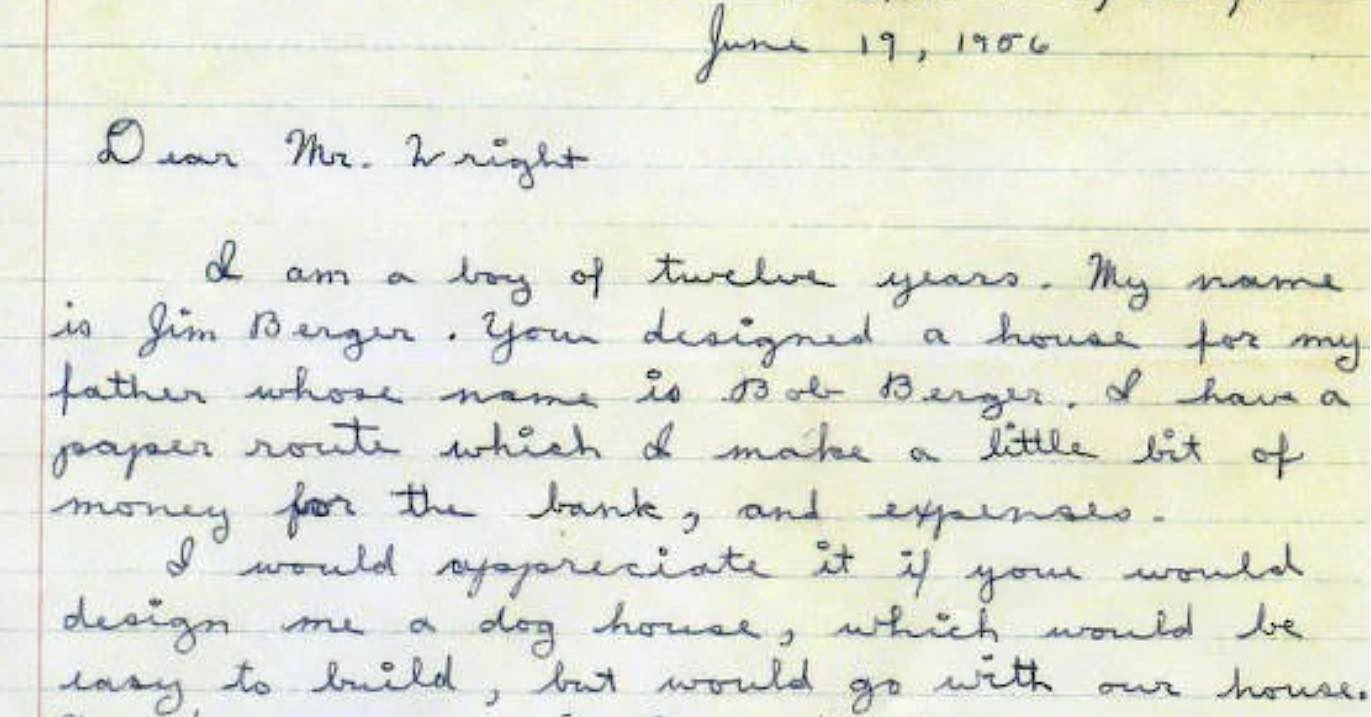 June 19, 1956
Dear Mr. Wright
I am a boy of twelve years. My name
is Jim Berger. You designed a house for my
father whose name is Bob Berger. I have a
paper route which I make a little bit of
money for the bank, and expenses.
I would appreciate it if you would
design me a dog house, which would be
easy to build, but would go with our house.